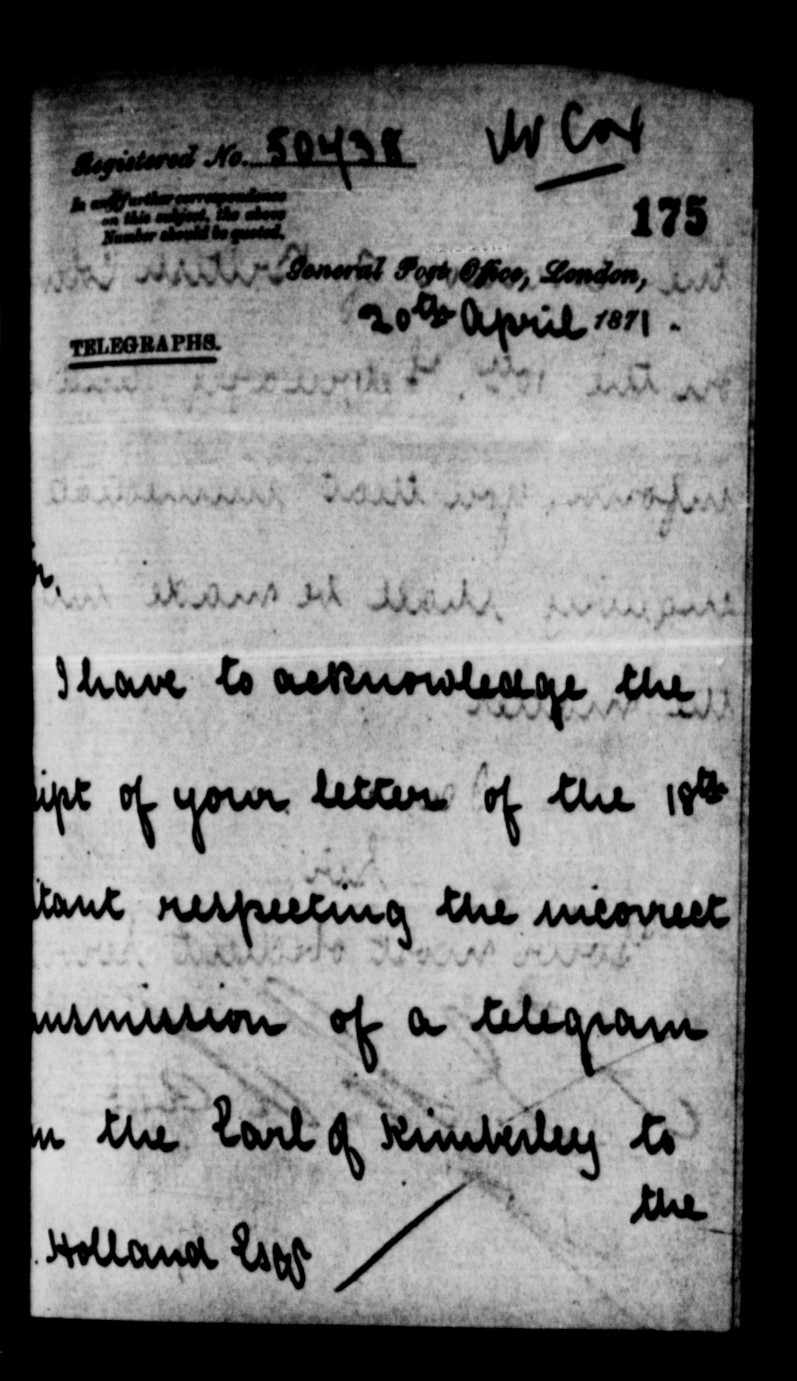 Registered No. 50438
Mr Cox
In any further correspondence
on this subject, the above
Number should be quoted.
175
General Post Office, London,
20th April 1871.
TELEGRAPHS.
I have to acknowledge the
ipt of your letter of the 18th
tant respecting the incorrect
nsmission of a telegram
m the Earl of Kimberley to
the
. Holland Esqr